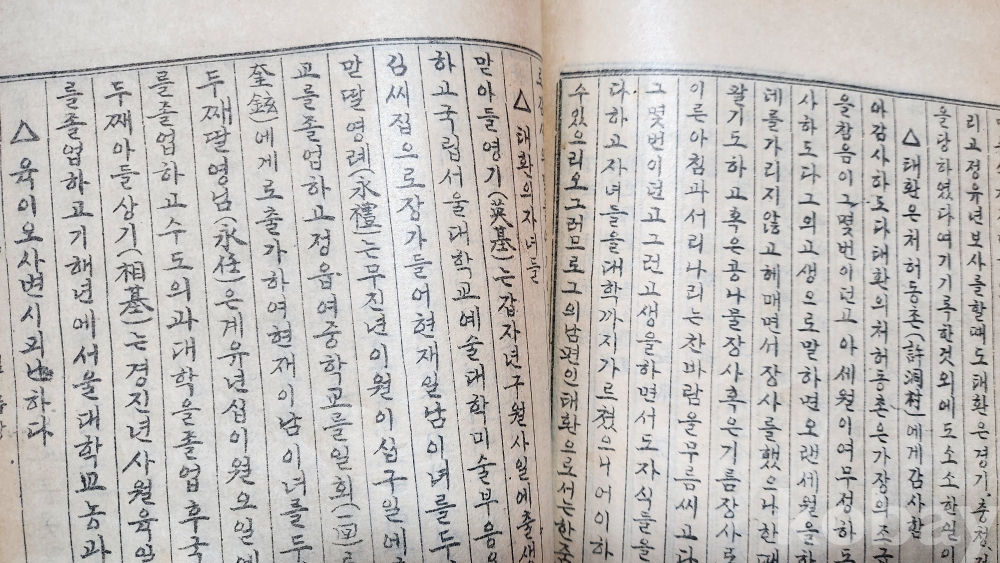 리고정유년보사를할때도태환은경기,충청,
을당하였다여기기록한것외에도소소한일이
△태환은처허동촌(許洞村)에게감사함
아감사하도다태환의처허동촌은가장의조
을참음이그몇번이던고아세월이여무정하도
사하도다그의고생으로말하면오랜세월을
데를가리지않고헤매면서장사를했으나한때
괄기도하고혹은콩나물장사혹은기름장사로
이른아침과서리나리는찬바람을무릅쓰고다
그몇번이던고그런고생을하면서도자식들을
다하고자녀들을대학까지가르쳤으니어이하
수있으리오그러므로그의남편인태환으로서는한
△태환의자녀들
맏아들영기(英基)는갑자년구월사일에출생
하고국립서울대학교예술대학미술부응용
김씨집으로장가들어현재일남이녀를두
맏딸영례(永禮)는무진년이월이십구일에
교를졸업하고정읍여중학교를일회(一回)로
奎鉉에게로출가하여현재이남이녀를두
두째딸영님(永任)은계유년섭이월오일에
를졸업하고수도의과대학을졸업후국
두째아들상기(相基)는경진년사월육일
를졸업하고기해년에서울대학교농과
△육이오사변시괴난하다